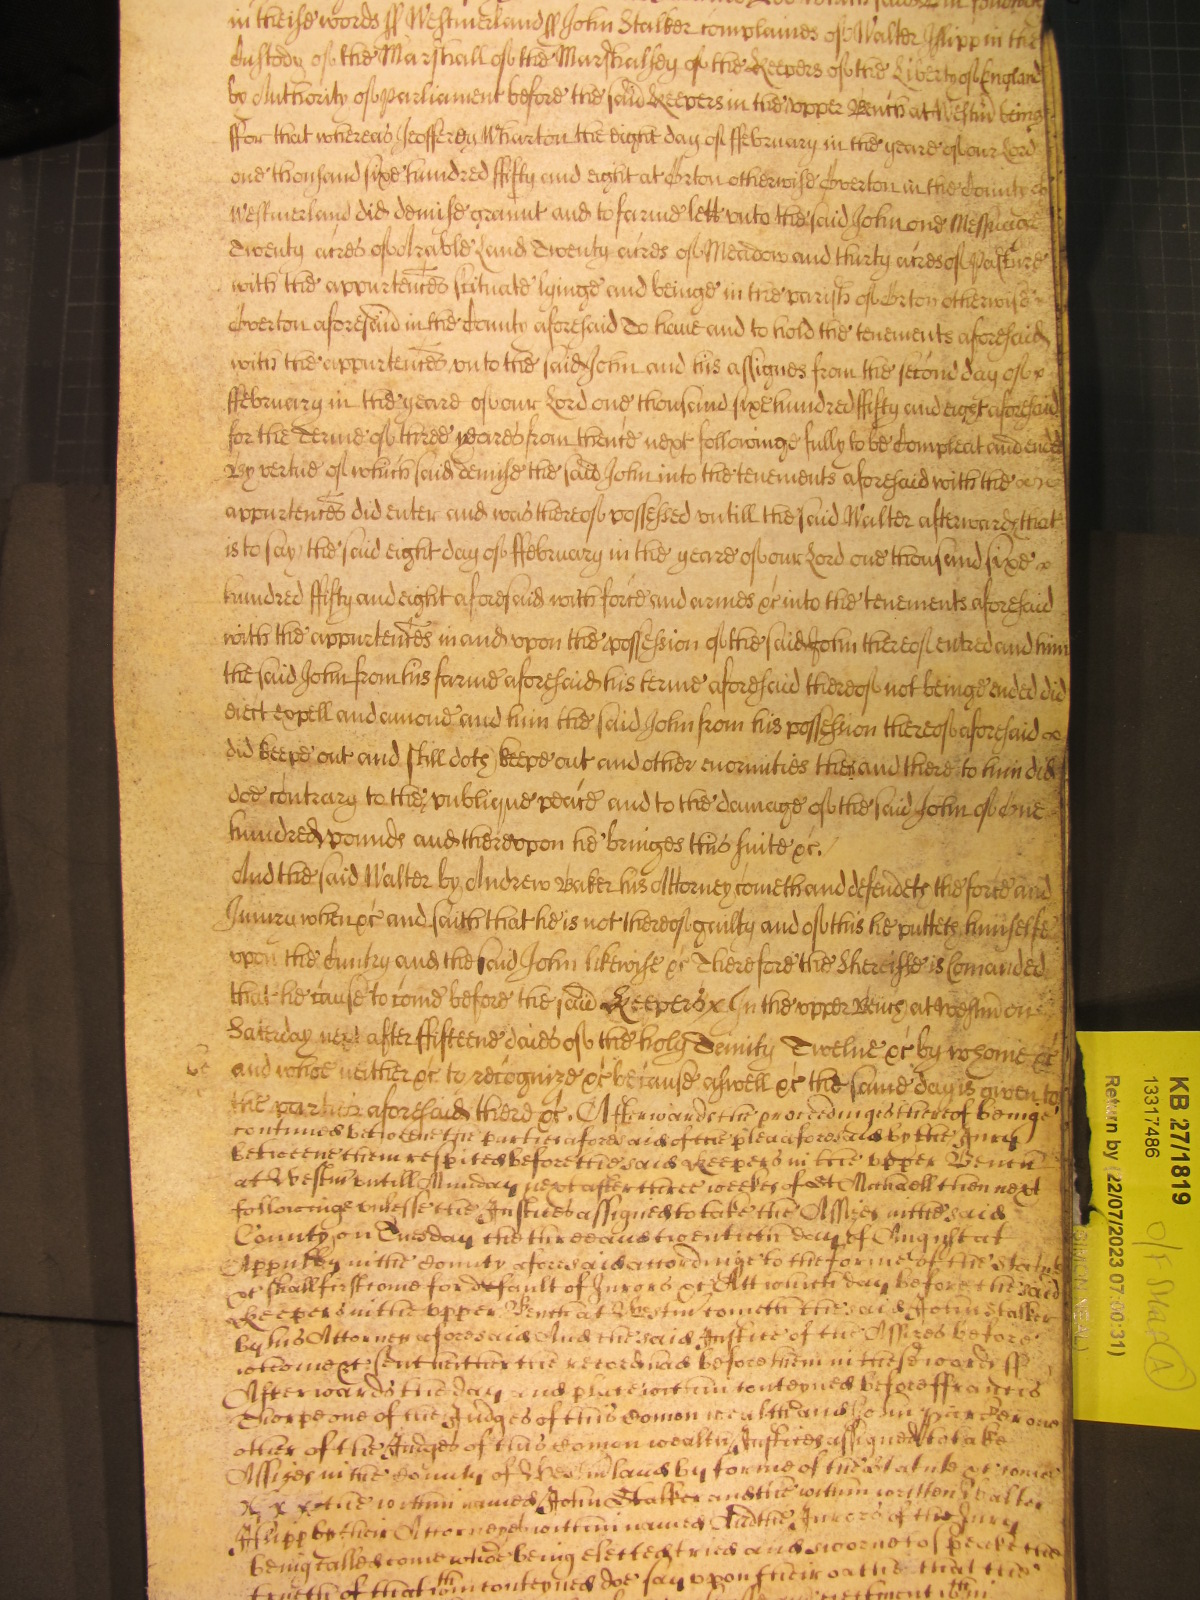 in theise words ss Westmerland ss John Stalker complaines of Walter Issipp in the
Custody of the Marshall of the Marshalsey of the Keepers of the Liberty of England
by Authority of Parliament before the said Keepers in the upper Bench at Westm being
ffor that whereas Jeofferey Wharton the eight day of ffebruary in the yeare of our Lord
one thousand sixe hundred fifty and eight at Orton otherwise Overton in the County of
Westmerland did demise graunt and to farme lett unto the said John one Messuage
Twenty acres of Arable Land Twenty acres of Meadow and thirty acres of Pasture
with the appurtences scituate lyinge and beinge in the parish of Orton otherwise
Overton aforesaid in the County aforesaid To have and to hold the tenements aforesaid
with the appurtences unto the said John and his assignes from the second day of
ffebruary in the yeare of our Lord one thousand sixe hundred ffifty and eight aforesaid
for the Terme of three yeares from thence next followinge fully to be Compleat and ended
By vertue of which said demise the said John into the tenements aforesaid with the
appurtences did enter and was thereof possessed untill the said Walter afterwards that
is to say the said eight day of ffebruary in the yeare of our Lord one thousand sixe
hundred ffifty and eight aforesaid with force and armes &c into the tenements aforesaid
with the appurtences in and upon the possession of the said John thereof entred and him
the said John from his farme aforesaid his terme aforesaid thereof not beinge ended did
eiect expell and amove and him the said John from his possession thereof aforesaid
did keepe out and still doth keepe out and other enormities then and there to him did
doe contrary to the publique peace and to the damage of the said John of One
hundred pounds and thereupon he bringes this suite &c.
And the said Walter by Andrew Baker his Attorney cometh and defendeth the force and
Iniury when &c and saith that he is not thereof guilty and of this he putteth himselfe
upon the Cuntry and the said John likewise &c Therefore the Sheriffe is Comanded
that he cause to come before the said Keepers &c In the upper Bench at Westm on
Saturday next after ffifteene daies of the holy Trinity Twelve &c by whome &c
and whoe neither &c to recognize &c because aswell &c the same day is given to
the parties aforesaid there &c. Afterwards the proceedinges thereof beinge
continued betweene the parties aforesaid of the plea aforesaid by the Jury
betweene them respited before the said Keepers in the upper Bench
at Westm untill Munday next after three weekes of St Michaell then next
followinge unlesse the Justices assigned to take the Assizes in the said
County on Tuesday the three and twentieth day of August at
Appulby in the County aforesaid accordinge to the forme of the Statute
&c shall first come for default of Jurors &c Att which day before the said
Keepers in the upper Bench at Westm cometh the said John Stalker
by his Attorney aforesaid And the said Justices of the Assizes before
whome &c sent hither the record had before them in these words ss
Afterwards the day and place within conteyned before ffrancis
Thorpe one of the Judges of this Comon wealth and John Parker one
other of the Judges of this Comon wealth Justices assigned to take
Assizes in the County of Westmland by forme of the Statute &c come
the within named John Stalker and the within written Walter
Issipp by their Attorneyes within named And the Jurors of the Jury
being called come whoe being elected tried and sworne to speake the
trueth of that within conteyned doe say upon their oathe that the
KB 27/1819
13317486
Return by (22/07/2023 07:00:31)